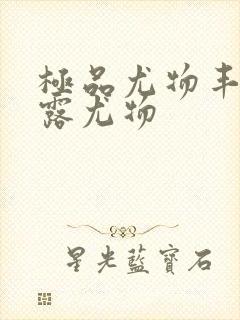 極品尤物丰
露尤物
星光藍寶石